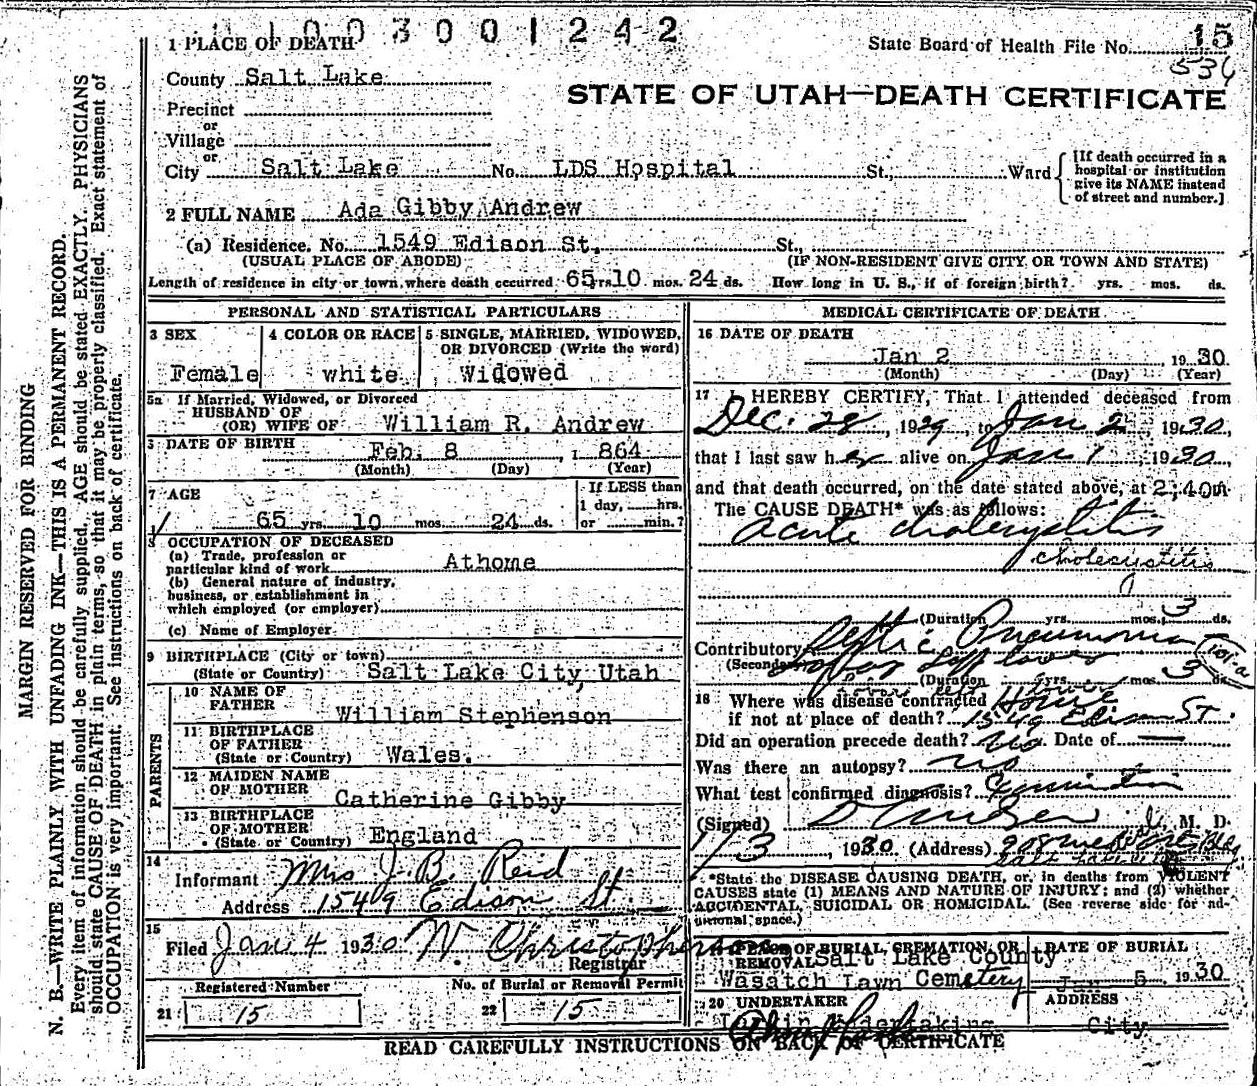 1003001242
1 PLACE OF DEATH
State Board of Health File No. 15
534
County Salt Lake
STATE OF UTAH—DEATH CERTIFICATE
Precinct
or
Village
or
City Salt Lake No. LDS Hospital St., Ward
[If death occurred in a
hospital or institution
give its NAME instead
of street and number.]
2 FULL NAME Ada Gibby Andrew
(a) Residence. No. 1549 Edison St. St.,
(USUAL PLACE OF ABODE) (IF NON-RESIDENT GIVE CITY OR TOWN AND STATE)
Length of residence in city or town where death occurred 65 yrs 10 mos. 24 ds. How long in U. S., if of foreign birth? yrs. mos. ds.
PERSONAL AND STATISTICAL PARTICULARS
3 SEX
Female
4 COLOR OR RACE
white
5 SINGLE, MARRIED, WIDOWED,
OR DIVORCED (Write the word)
Widowed
5a If Married, Widowed, or Divorced
HUSBAND OF
(OR) WIFE OF William R. Andrew
DATE OF BIRTH Feb. 8, 1864
(Month) (Day) (Year)
7 AGE
65 yrs. 10 mos. 24 ds.
If LESS than
1 day, hrs.
or min.?
8 OCCUPATION OF DECEASED
(a) Trade, profession or
particular kind of work Athome
(b) General nature of industry,
business, or establishment in
which employed (or employer)
(c) Name of Employer
9 BIRTHPLACE (City or town)
(State or Country) Salt Lake City, Utah
PARENTS
10 NAME OF
FATHER
William Stephenson
11 BIRTHPLACE
OF FATHER
(State or Country) Wales.
12 MAIDEN NAME
OF MOTHER
Catherine Gibby
13 BIRTHPLACE
OF MOTHER
(State or Country) England
14
Informant Mrs J. B. Reid
Address 1549 Edison St
15
Filed Jan 4 1930 W. Christopherson
Registrar
Registered Number
21 15
No. of Burial or Removal Permit
22 15
MEDICAL CERTIFICATE OF DEATH
16 DATE OF DEATH
Jan 2 1930
(Month) (Day) (Year)
17 I HEREBY CERTIFY, That I attended deceased from
Dec. 28, 1929, to Jan 2 1930,
that I last saw her alive on Jan 1, 1930,
and that death occurred, on the date stated above, at 2;40 m
The CAUSE DEATH* was as follows:
Acute cholecystitis
cholecystitis
(Duration yrs. mos. 3 ds.
Contributory Septic Pneumonia
(Secondary) left lower
(Duration yrs. mos. 3 ds.
over left lower
101-a
18 Where was disease contracted Home
if not at place of death? 1549 Edison St.
Did an operation precede death? No. Date of —
Was there an autopsy? no
What test confirmed diagnosis?
(Signed) M. D.
1/3, 1930 (Address)
*State the DISEASE CAUSING DEATH, or, in deaths from VIOLENT
CAUSES state (1) MEANS AND NATURE OF INJURY; and (2) whether
ACCIDENTAL, SUICIDAL OR HOMICIDAL. (See reverse side for ad-
ditional space.)
PLACE OF BURIAL, CREMATION, OR
REMOVAL Salt Lake County
Wasatch Lawn Cemetery
DATE OF BURIAL
Jan 5 1930
20 UNDERTAKER
Undertaking
ADDRESS
City
READ CAREFULLY INSTRUCTIONS ON BACK OF CERTIFICATE
MARGIN RESERVED FOR BINDING
N. B.—WRITE PLAINLY WITH UNFADING INK—THIS IS A PERMANENT RECORD.
Every item of information should be carefully supplied. AGE should be stated EXACTLY. PHYSICIANS
should state CAUSE OF DEATH in plain terms, so that it may be properly classified. Exact statement of
OCCUPATION is very important. See instructions on back of certificate.